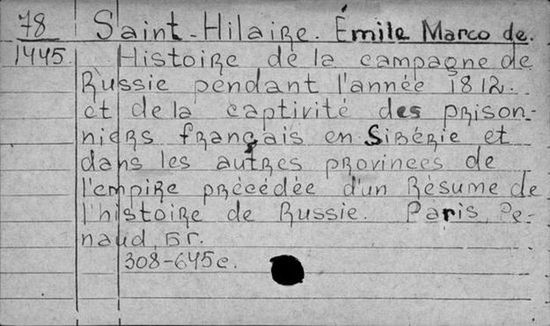 78 Saint-Hilaire. Émile Marco de.
1445. Histoire de la campagne de
Russie pendant l'année 1812.
et de la captivité des prison-
niers français en Sibérie et
dans les autres provinces de
l'empire précédée d'un Résume de
l'histoire de Russie. Paris Pe-
naud, Б г.
308-645 с.